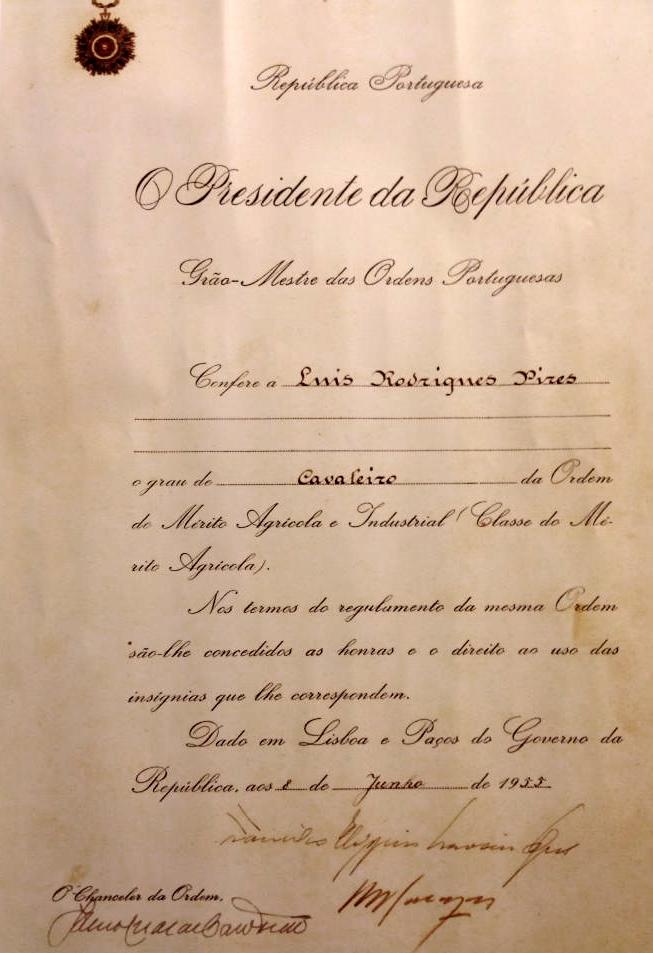 República Portuguesa
O Presidente da República
Grão-Mestre das Ordens Portuguesas
Confere a Luis Rodrigues Pires
o grau de Cavaleiro da Ordem
do Mérito Agrícola e Industrial (Classe do Mé-
rito Agrícola).
Nos termos do regulamento da mesma Ordem
são-lhe concedidos as honras e o direito ao uso das
insígnias que lhe correspondem.
Dado em Lisboa e Paços do Governo da
República, aos 8 de Junho de 1955
Francisco Higino Craveiro Lopes
O Chanceler da Ordem,